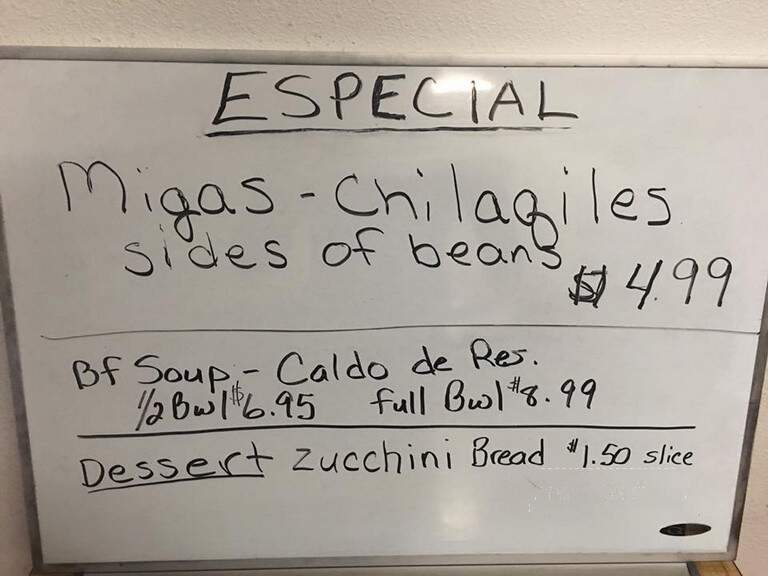 ESPECIAL
Migas - Chilaqiles
sides of beans
$4.99
Bf Soup - Caldo de Res.
1/2 Bwl $6.95 full Bwl $8.99
Dessert Zucchini Bread $1.50 slice